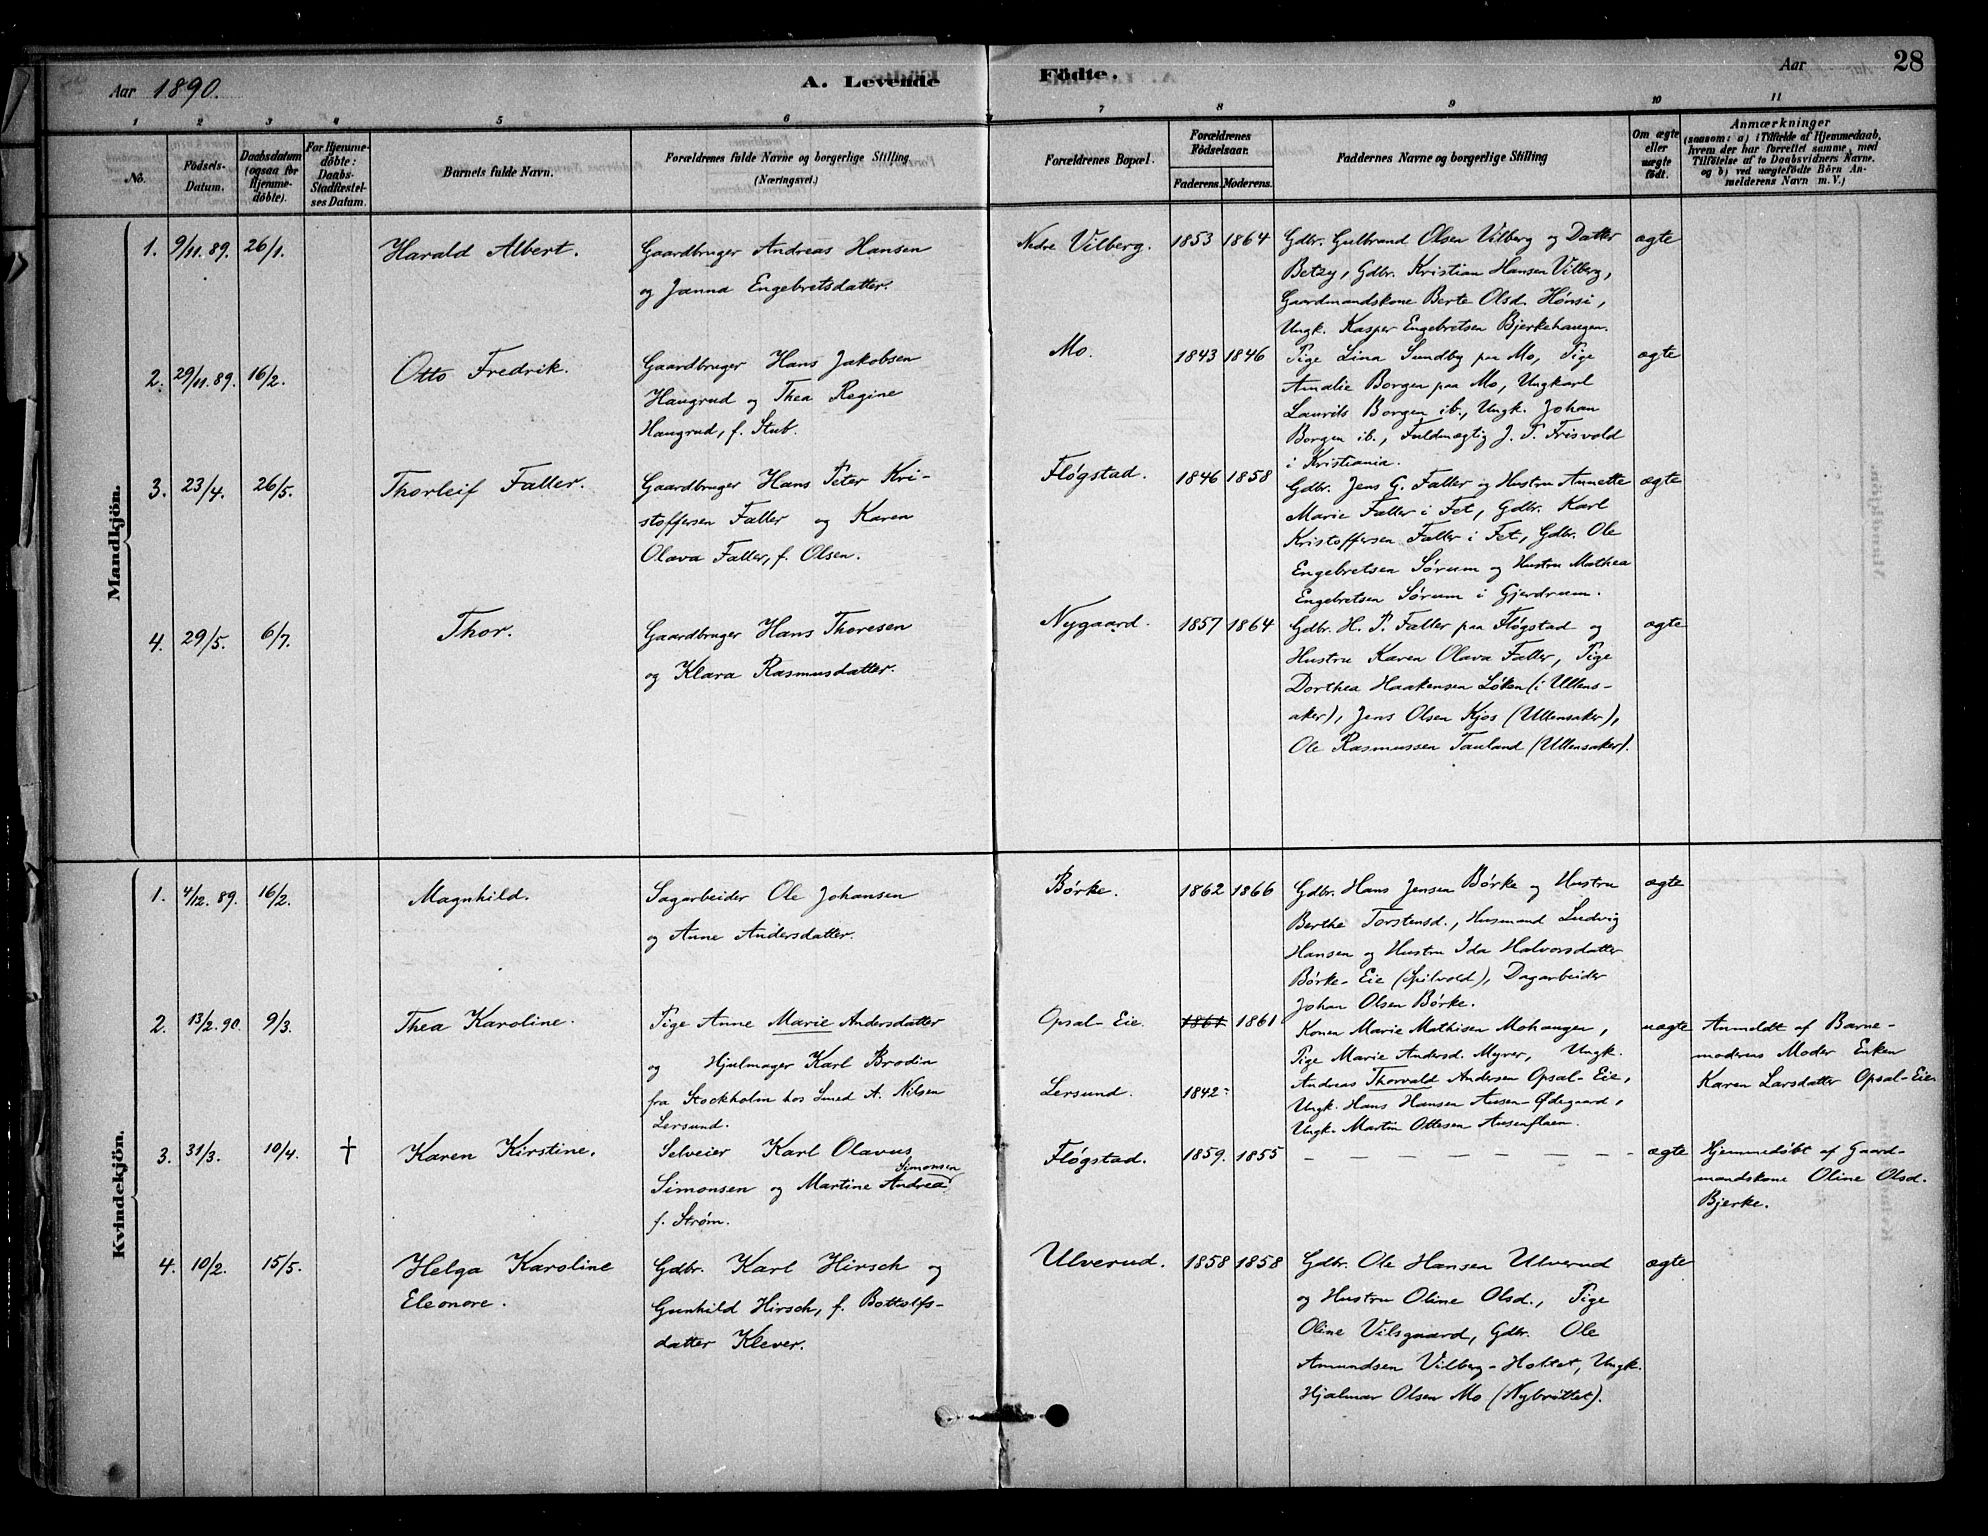 Aar 1890.
A. Levende
Födte.
Aar
28
1
2
3
4
5
6
7
8
9
10
11
No.
Födsels-
Datum.
Daabsdatum
(ogsaa for
Hjemme-
döbte).
For Hjemme-
döbte:
Daabs-
Stadfæstel-
ses Datum.
Barnets fulde Navn.
Forældrenes fulde Navne og borgerlige Stilling
(Næringsvei.)
Forældrenes Bopæl.
Forældrenes
Födselsaar.
Faderens.
Moderens.
Faddernes Navne og borgerlige Stilling
Om ægte
eller
uægte
født.
Anmærkninger
(saasom: a) i Tilfælde af Hjemmedaab,
hvem der har forrettet samme, med
Tilföielse af to Daabsvidners Navne.
og b) ved uægtefödte Börn An-
melderens Navn m. V.)
Mandkjön.
1. 9/11. 89. 26/1.
Harald Albert.
Gaardbruger Andreas Hansen
og Janna Engebretsdatter.
Nedre Vilberg.
1853 1864
Gdbr. Gulbrand Olsen Vilberg og Datter
Betzy, Gdbr. Kristian Hansen Vilberg,
Gaardmandskone Berte Olsd. Hønsi,
Ungk. Kasper Engebretsen Bjerkehaugen.
ægte
2. 29/11. 89. 16/2.
Otto Fredrik.
Gaardbruger Hans Jakobsen
Haugrud og Thea Regine
Haugrud, f. Stub.
Mo.
1843 1846
Pige Lina Sundby paa Mo, Pige
Amalie Borgen paa Mo, Ungkarl
Laurits Borgen ib., Ungk. Johan
Borgen ib., Fuldmægtig J. P. Frisvold
i Kristiania.
ægte
3. 23/4. 26/5.
Thorleif Faller.
Gaardbruger Hans Peter Kri-
stoffersen Faller og Karen
Olava Faller, f. Olsen.
Fløgstad.
1846 1858
Gdbr. Jens G. Faller og Hustru Annette
Marie Faller i Fet, Gdbr. Karl
Kristoffersen Faller i Fet, Gdbr. Ole
Engebretsen Sørum og Hustru Mathea
Engebretsen Sørum i Gjerdrum.
ægte
4. 29/5. 6/7.
Thor.
Gaardbruger Hans Thoresen
og Klara Rasmusdatter.
Nygaard.
1857 1864
Gdbr. H. P. Faller paa Fløgstad og
Hustru Karen Olava Faller, Pige
Dorthea Haakensen Løken (i Ullens-
aker), Jens Olsen Kjos (Ullensaker),
Ole Rasmussen Tauland (Ullensaker).
ægte
Kvindekjön.
1. 4/12. 89. 16/2.
Magnhild.
Sagarbeider Ole Johansen
og Anne Andersdatter.
Børke.
1862 1866
Gdbr. Hans Jensen Børke og Hustru
Berthe Torstensd., Husmand Ludvig
Hansen og Hustru Ida Halvorsdatter
Børke-Eie (Spilvold), Dagarbeider
Johan Olsen Børke.
ægte
2. 13/2. 90. 9/3.
Thea Karoline.
Pige Anne Marie Andersdatter
og Hjulmager Karl Brodin
fra Stockholm hos Smed A. Nilsen
Lersund.
Opsal-Eie.
1861 1861
Lersund.
1842
Konen Marie Mathisen Mohaugen,
Pige Marie Andersd. Myrer, Ungk.
Andreas Thorvald Andersen Opsal-Eie,
Ungk. Hans Hansen Ausen-Ødegaard,
Ungk. Martin Ottesen Ausenflaen.
uægte
Anmeldt af Barne-
moderens Moder Enken
Karen Larsdatter Opsal-Eie
3. 31/3. 10/4. †
Karen Kirstine.
Selveier Karl Olavus
Simonsen og Martine Andrea Simonsen
f. Strøm.
Fløgstad.
1859. 1855
– – – – – – –
ægte
Hjemmedøbt af Gaard-
mandskone Oline Olsd.
Bjerke.
4. 10/2. 15/5.
Helga Karoline
Eleonore.
Gdbr. Karl Hirsch og
Gunhild Hirsch, f. Bottolfs-
datter Klever.
Ulverud.
1858 1858
Gdbr. Ole Hansen Ulverud
og Hustru Oline Olsd., Pige
Oline Vilsgaard, Gdbr. Ole
Amundsen Vilberg-Holtet, Ungk.
Hjalmar Olsen Mo (Nybrøttet).
ægte